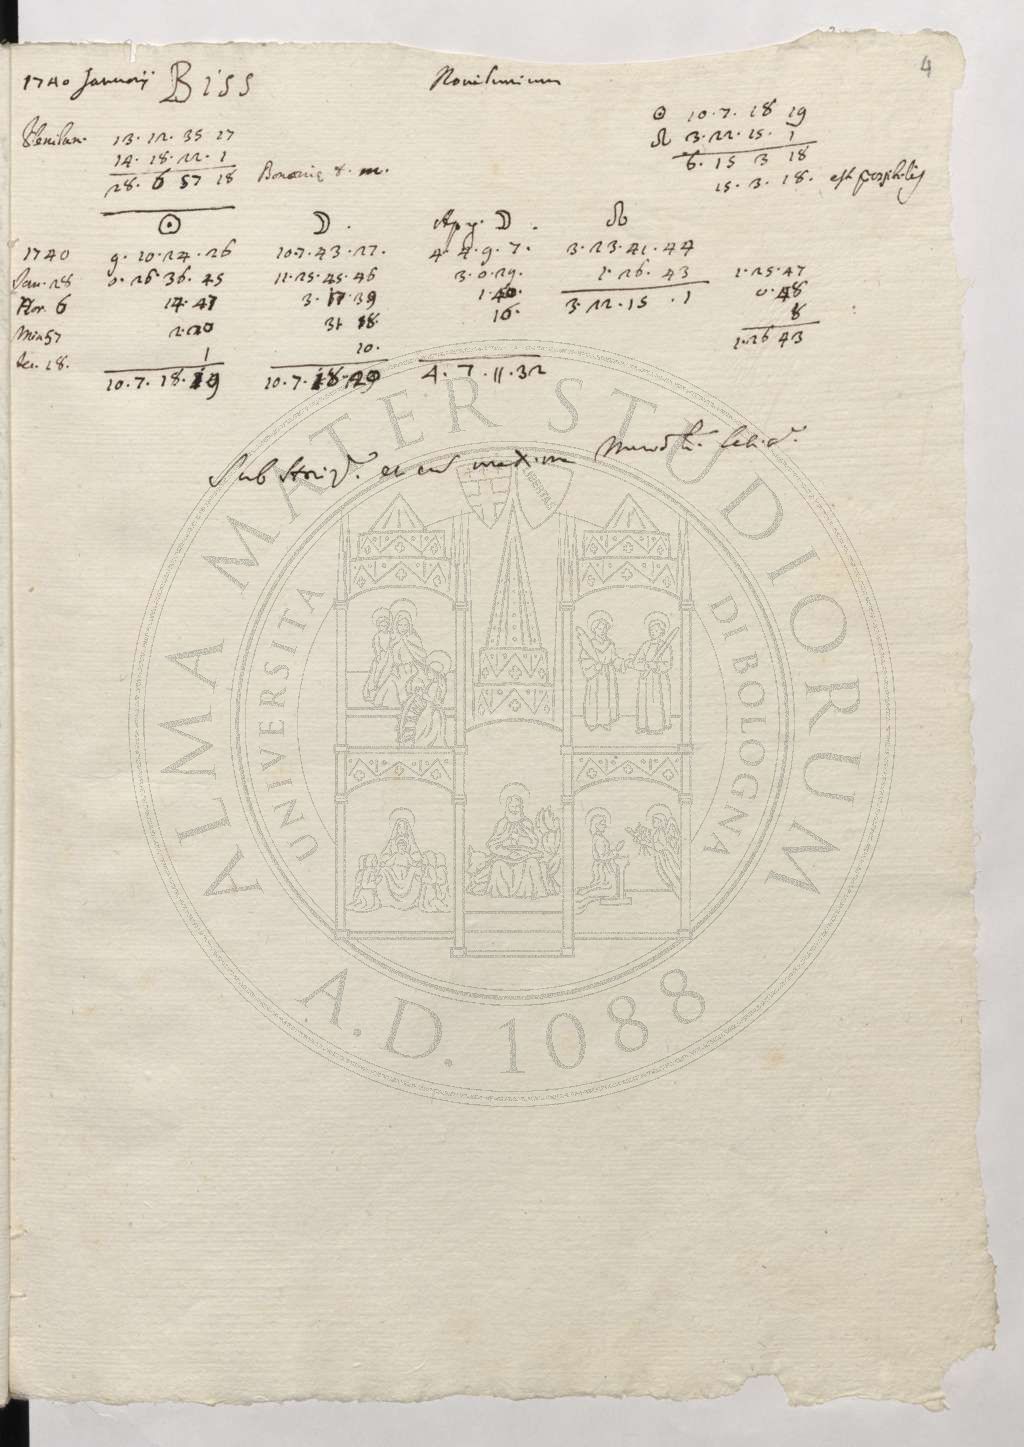 4
1740 Januarij Biss Novilunium
13. 12. 35 17
14. 18. 22. 1
28. 6 57 18 Bononie
☉ 10. 7. 18 19
☊ 3. 22. 15. 1
6. 15 3 18
15. 3. 18. est
☉ ☽. Apg. ☽. ☊
1740 9. 10. 24. 26 10. 7. 43. 27. 4. 4. 9. 7. 3. 23. 41. 44
Jan. 28 0. 26 36. 45 11. 25. 45. 46 3. 0. 29. 1. 26. 43 1. 25. 47
Hor. 6 14. 47 3. 17. 39 1. 40. 3. 22. 15. 1 0. 48
Min 57 2. 20 31 18. 16. 8
Sec. 18. 1 10. 1. 26 43
10. 7. 18. 19 10. 7. 18. 29 4. 7. 11. 32
Sub et
ALMA MATER STUDIORUM
A.D. 1088
UNIVERSITA DI BOLOGNA
LIBERTAS